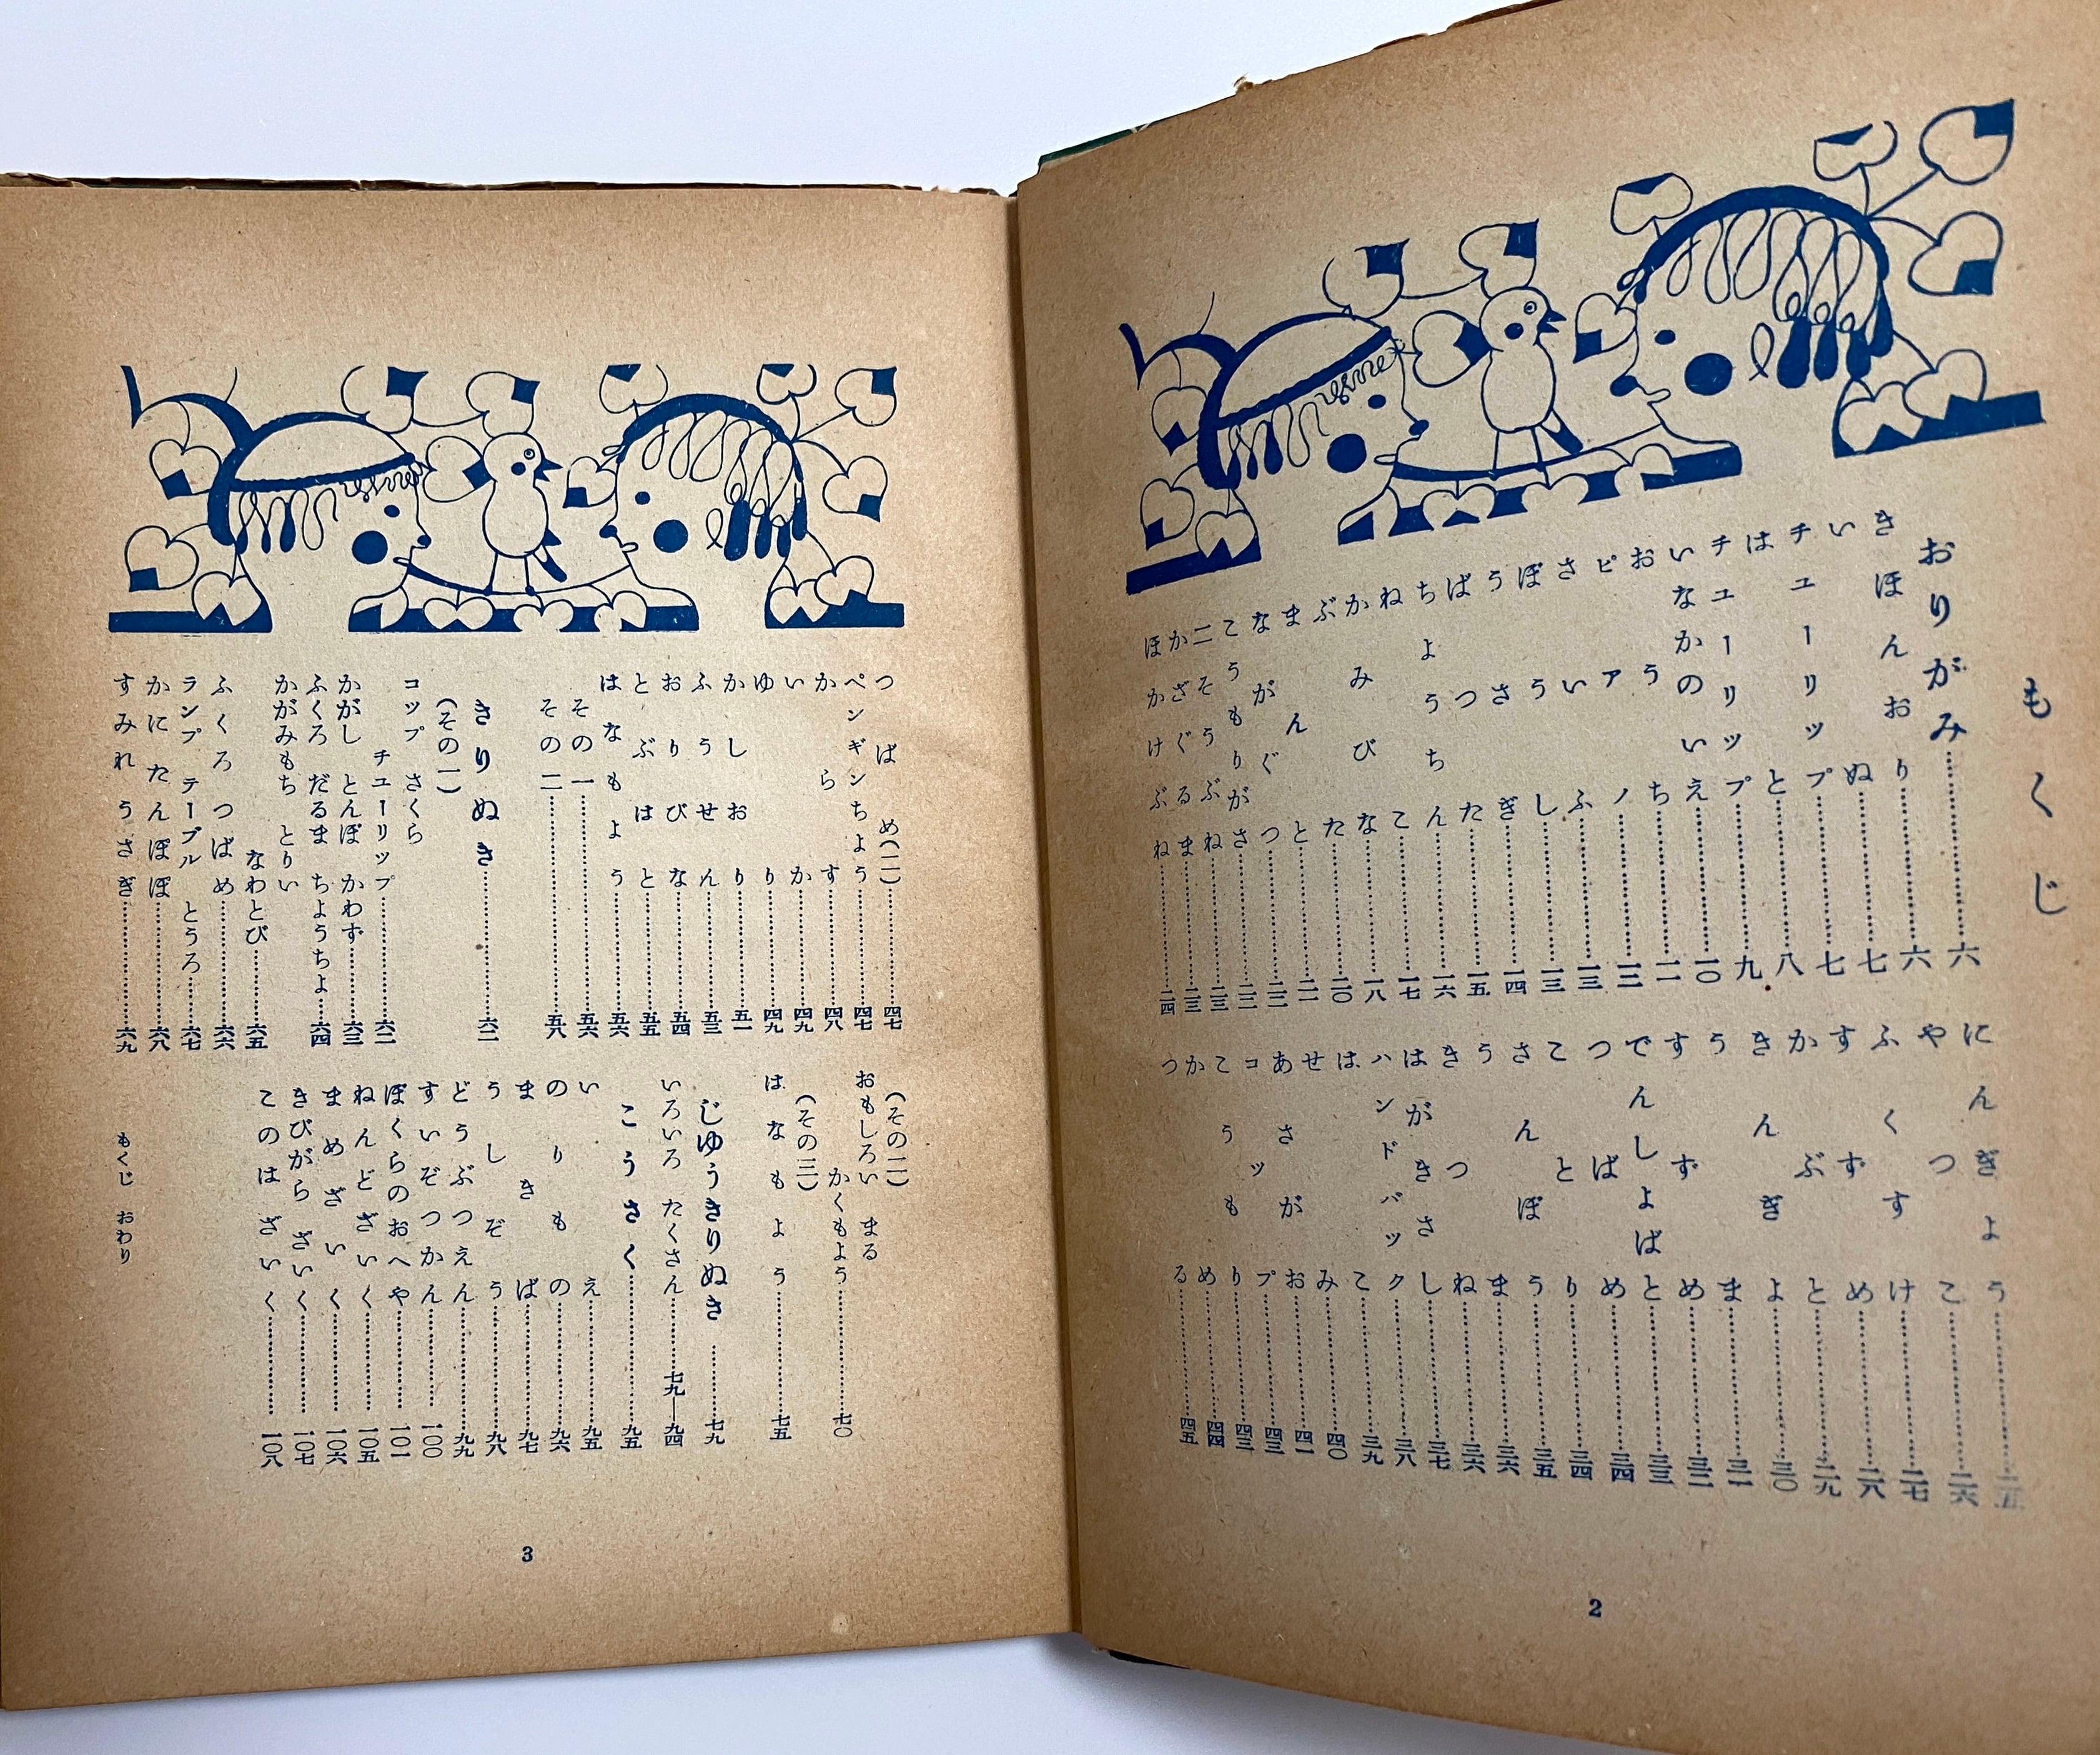 もくじ
おりがみ……六
きほんおり……六
いぬ……七
チユーリップ……七
はと……八
チユーリップ……九
いなかのいえ……一〇
おうち……一一
ピアノ……一二
さいふ……一三
ぼうし……一三
うさぎ……一四
ばつた……一五
ちようちん……一六
ねこ……一七
かみびな……一八
ぶた……二〇
まんと……二一
ながぐつ……二二
こうもりがさ……二二
二そうぶね……二三
かざぐるま……二三
ほかけぶね……二四
にんぎよう……二五
やつこ……二六
ふくすけ……二七
すずめ……二八
かぶと……二九
きんぎよ……三〇
うま……三一
すずめ……三二
でんしよばと……三三
つばめ……三四
ことり……三四
さんぽう……三五
うま……三六
きつね……三六
はがきさし……三七
ハンドバック……三八
はこ……三九
せみ……四〇
あさがお……四一
コップ……四二
こうもり……四三
かめ……四四
つる……四五
2
つばめ(二)……四七
ペンギンちよう……四七
からす……四八
いか……四九
ゆり……四九
かしおり……五一
ふうせん……五三
おりびな……五四
とぶはと……五五
はなもよう……五六
その一……五六
その二……五八
きりぬき……六二
(その一)
コップ さくら
チユーリップ……六二
かがし とんぼ かわず……六三
ふくろ だるま ちようちよ……六四
かがみもち とりい
なわとび……六五
ふくろ つばめ……六六
ランプ テーブル とうろ……六七
かに たんぽぽ……六八
すみれ うさぎ……六九
(その二)
おもしろい まる
かくもよう……七〇
(その三)
はなもよう……七五
じゆうきりぬき……七九
いろいろ たくさん……七九—九四
こうさく……九五
いえ……九五
のりもの……九六
まきば……九七
うしぞう……九八
どうぶつえん……九九
すいぞつかん……一〇〇
ぼくらのおへや……一〇一
ねんどざいく……一〇五
まめざいく……一〇六
きびがらざいく……一〇七
このはざいく……一〇八
もくじ おわり
3